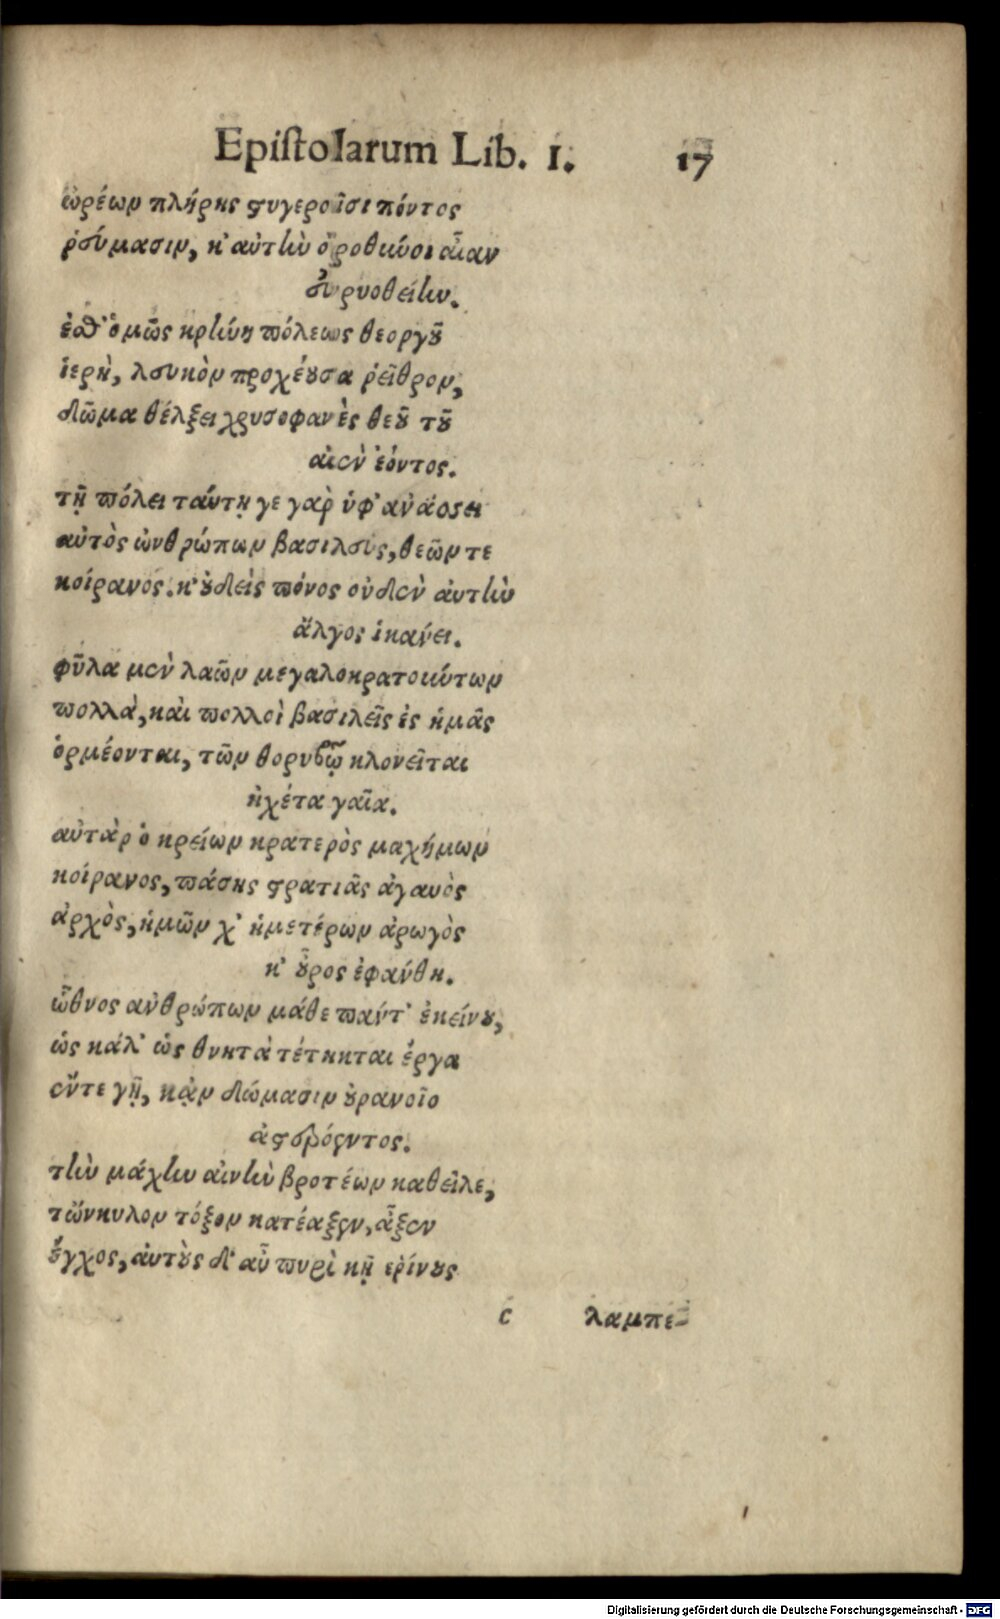 Epistolarum Lib. I. 17
ὠρέων πλήρης στυγεροῖσι πόντος
ῥεύμασιν, κ' αὐτὴν ὀροθηύοι αἶαν
εὐρυοθείην.
ἔσθ' ὁμῶς κρήνη πόλεως θεοργοῦ
ἱερὴ, λευκὸν προχέουσα ῥεῖθρον,
δῶμα θέλξει χρυσοφανὲς θεοῦ τοῦ
αἰὲν ἐόντος.
τῇ πόλει ταύτῃ γε γὰρ ὑφ' ἀνάσσει
αὐτὸς ὠνθρώπων βασιλεὺς, θεῶν τε
κοίρανος. κ' οὐδεὶς πόνος οὐδὲν ἀυτὴν
ἄλγος ἱκανει.
φῦλα μὲν λαῶν μεγαλοκρατούντων
πολλὰ, καὶ πολλοὶ βασιλεῖς ἐς ἡμᾶς
ὁρμέονται, τῶν θορυβῷ κλονεῖται
ἠχέτα γαῖα.
αὐτὰρ ὁ κρείων κρατερὸς μαχήμων
κοίρανος, πάσης στρατιᾶς ἀγαυὸς
ἀρχὸς, ἡμῶν χ' ἡμετέρων ἀρωγὸς
κ' οὖρος ἐφάνθη.
ὦθνος ἀνθρώπων μάθε πάντ' ἐκείνου,
ὡς κάλ' ὡς θνητὰ τέτηκται ἔργα
ἔντε γῇ, κᾂν δώμασιν οὐρανοῖο
ἀστερόεντος.
τὴν μάχην αἰνὴν βροτέων καθεῖλε,
τὤνκυλον τόξον κατέαξεν, ἆξεν
οὔγχος, ἀυτοὺς δ' αὖ πυρὶ κῇ ἐρίνους
c λαμπε-